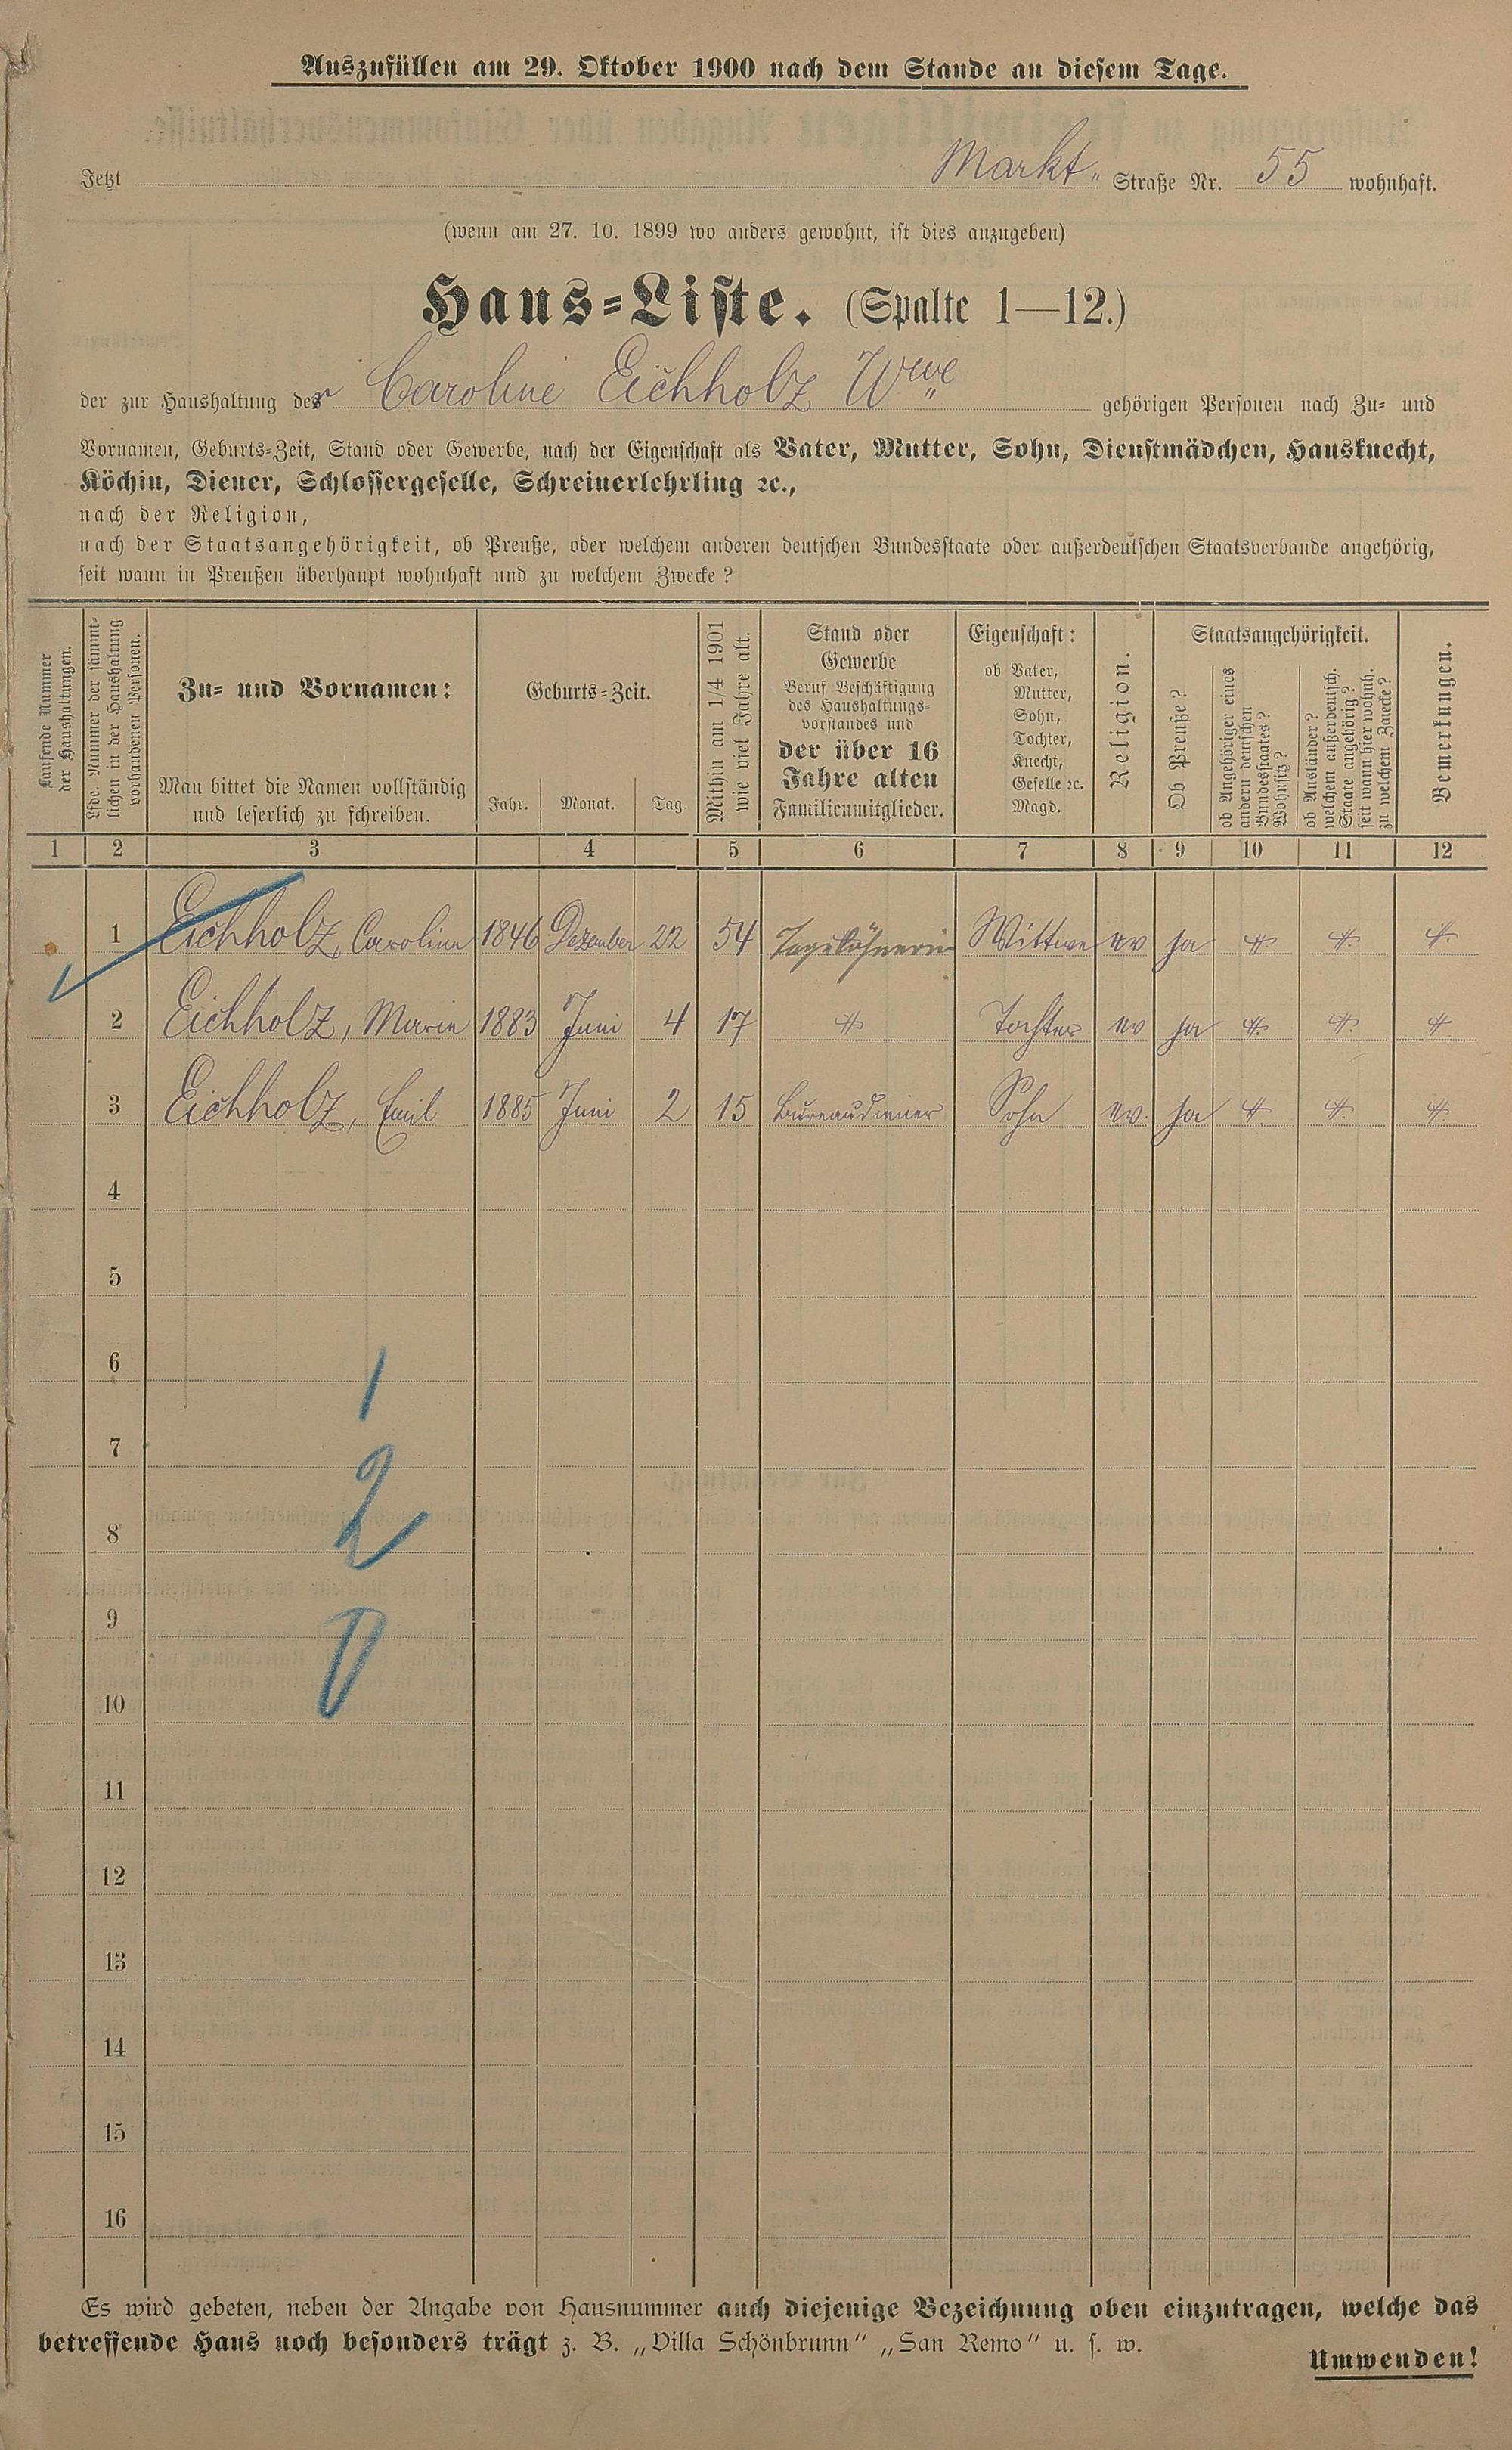 Auszufüllen am 29. Oktober 1900 nach dem Stande an diesem Tage.
Jetzt Markt- Straße Nr. 55 wohnhaft.
(wenn am 27. 10. 1899 wo anders gewohnt, ist dies anzugeben)
Haus-Liste. (Spalte 1—12.)
der zur Haushaltung der Caroline Eichholz Wwe gehörigen Personen nach Zu- und
Vornamen, Geburts-Zeit, Stand oder Gewerbe, nach der Eigenschaft als Vater, Mutter, Sohn, Dienstmädchen, Hausknecht,
Köchin, Diener, Schlossergeselle, Schreinerlehrling ꝛc.,
nach der Religion,
nach der Staatsangehörigkeit, ob Preuße, oder welchem anderen deutschen Bundesstaate oder außerdeutschen Staatsverbande angehörig,
seit wann in Preußen überhaupt wohnhaft und zu welchem Zwecke?
Laufende Nummer
der Haushaltungen.
Lfde. Nummer der sämmt-
lichen in der Haushaltung
vorhandenen Personen.
Zu- und Vornamen:
Man bittet die Namen vollständig
und leserlich zu schreiben.
Geburts-Zeit.
Jahr. Monat. Tag.
Mithin am 1/4 1901
wie viel Jahre alt.
Stand oder
Gewerbe
Beruf Beschäftigung
des Haushaltungs-
vorstandes und
der über 16
Jahre alten
Familienmitglieder.
Eigenschaft:
ob Vater,
Mutter,
Sohn,
Tochter,
Knecht,
Geselle ꝛc.
Magd.
Religion.
Staatsangehörigkeit.
Ob Preuße?
ob Angehöriger eines
andern deutschen
Bundesstaates?
Wohnsitz?
ob Ausländer?
welchem außerdeutsch.
Staate angehörig?
seit wann hier wohnh.
zu welchem Zwecke?
Bemerkungen.
1 2 3 4 5 6 7 8 9 10 11 12
1 Eichholz, Caroline 1846 Dezember 22 54 Tagelöhnerin Wittwe ev ja
2 Eichholz, Marie 1883 Juni 4 17 Tochter ev ja
3 Eichholz, Emil 1885 Juni 2 15 Bureaudiener Sohn ev. ja
4
5
6
1
7
2
8
9
0
10
11
12
13
14
15
16
Es wird gebeten, neben der Angabe von Hausnummer auch diejenige Bezeichnung oben einzutragen, welche das
betreffende Haus noch besonders trägt z. B. „Villa Schönbrunn“ „San Remo“ u. s. w.
Umwenden!